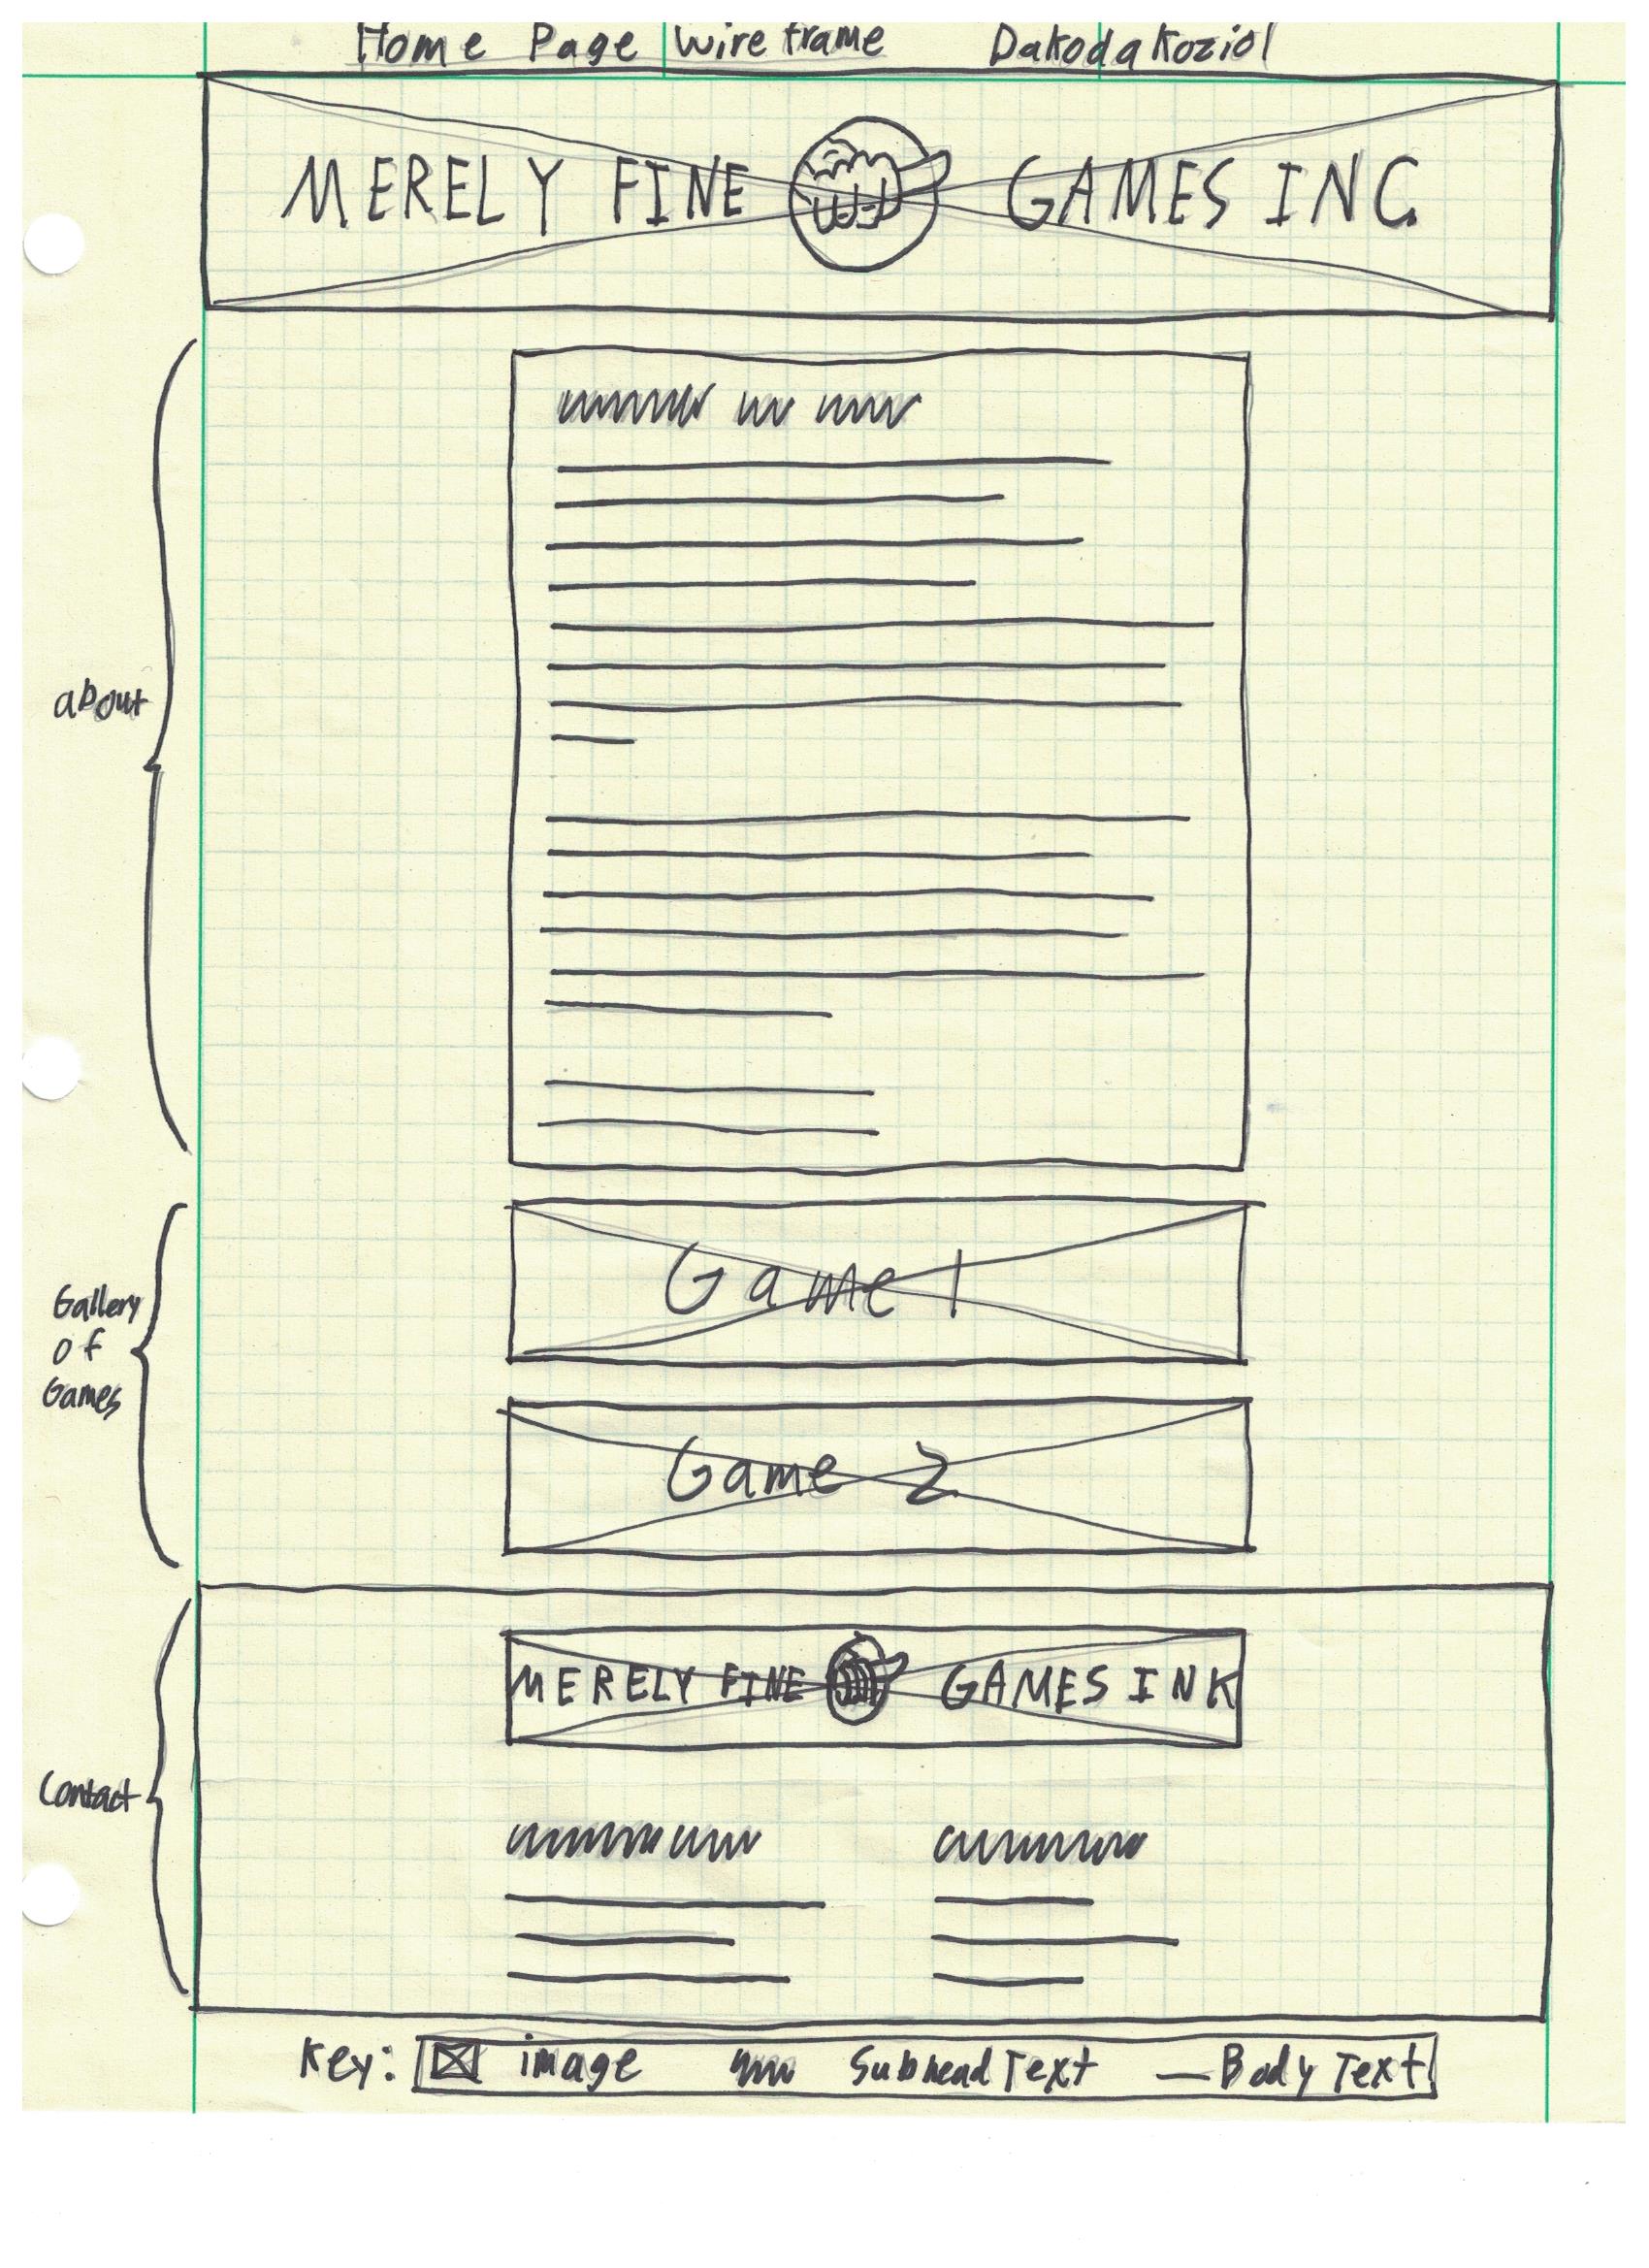 Home Page Wireframe Dakoda Koziol
MERELY FINE GAMES INC.
about
Game 1
Gallery
of
Games
Game 2
MERELY FINE GAMES INK
Contact
Key: image Subhead Text Body Text